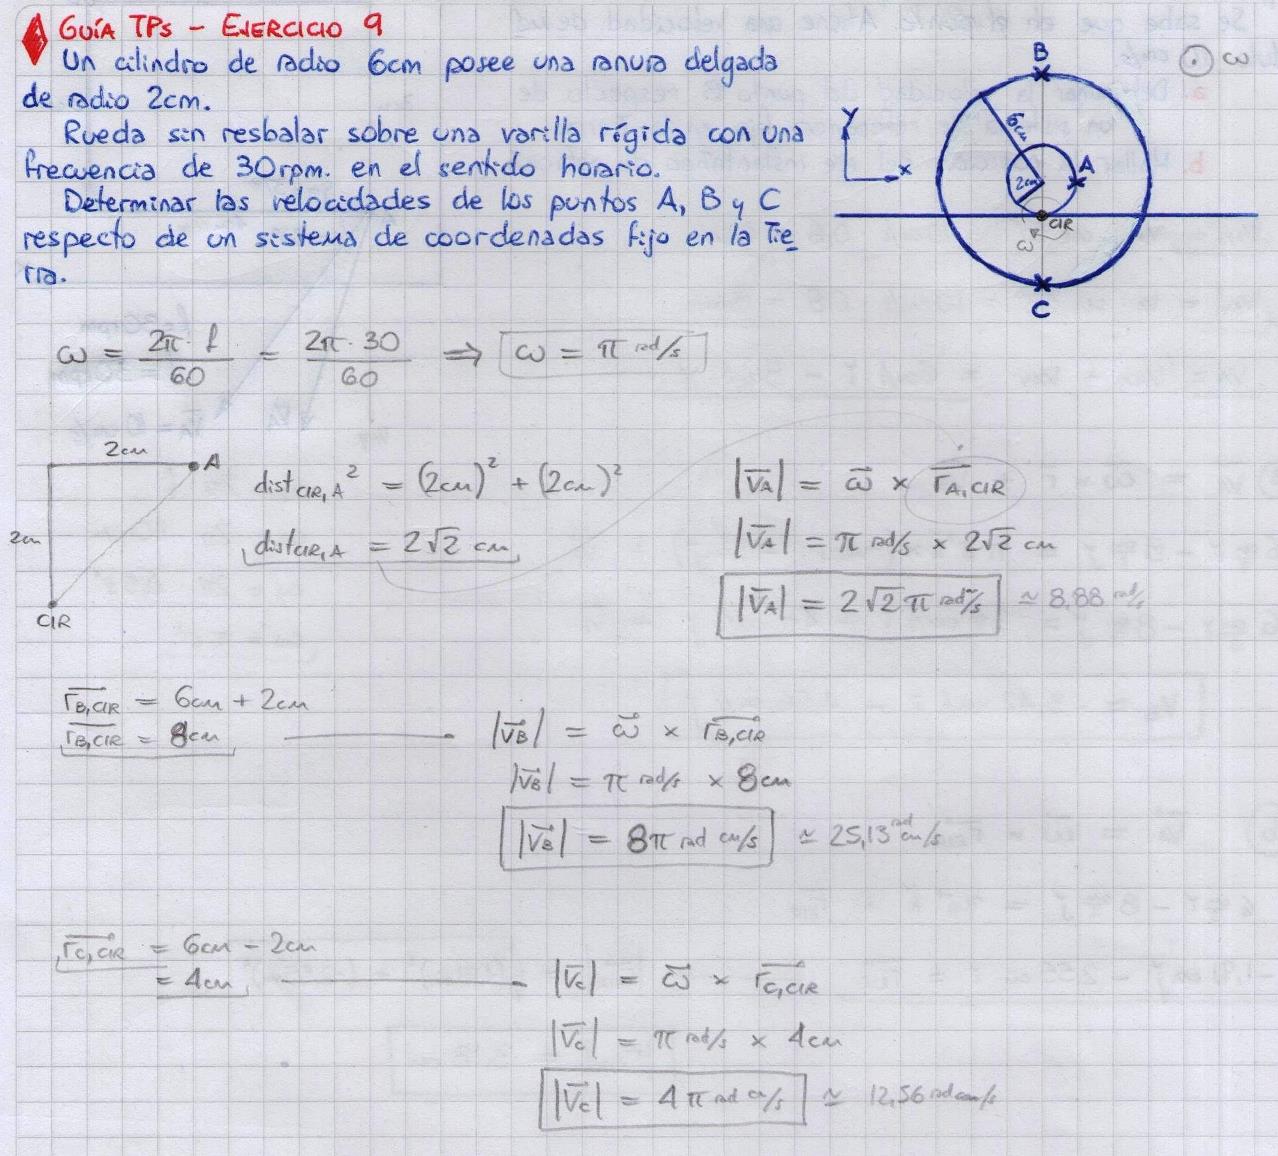 GUÍA TPs - EJERCICIO 9
Un cilindro de radio 6cm posee una ranura delgada
de radio 2cm.
Rueda sin resbalar sobre una varilla rígida con una
frecuencia de 30rpm. en el sentido horario.
Determinar las velocidades de los puntos A, B y C
respecto de un sistema de coordenadas fijo en la Tie
rra.
B
ω
Y
x
6cm
2cm
A
CIR
ω
C
ω = 2π · f / 60 = 2π · 30 / 60 ⇒ ω = π rad/s
2cm
A
2cm
CIR
dist CIR,A² = (2cm)² + (2cm)²
dist CIR,A = 2√2 cm
|VA| = ω × rA,CIR
|VA| = π rad/s × 2√2 cm
|VA| = 2√2 π rad cm/s ≃ 8,88 rad/s
rB,CIR = 6cm + 2cm
rB,CIR = 8cm
|VB| = ω × rB,CIR
|VB| = π rad/s × 8cm
|VB| = 8π rad cm/s ≃ 25,13 rad cm/s
rC,CIR = 6cm - 2cm
= 4cm
|Vc| = ω × rC,CIR
|Vc| = π rad/s × 4cm
|Vc| = 4π rad cm/s ≃ 12,56 rad cm/s